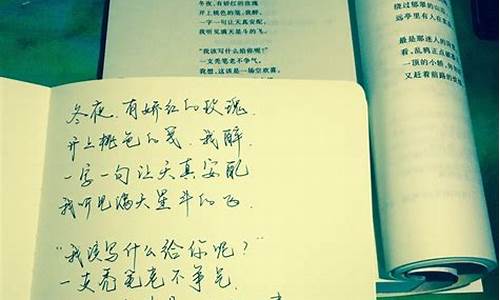 冬夜，有娇红的玫瑰
开上桃色的笺，我醉，
一字一句让天真安配，
我听见满天星斗的飞。
“我该写什么给你呢？”
一支秃笔老不争气，
我想，这该是一场空欢喜。
绕过郁翠的山
远亭里有人在
最是那迷人的
看，乱鸦正点破
一顶的小轿，
又赶着前路的
冬夜，有娇红的玫瑰.
开上桃色的笺.我醉.
一字一句让天真安配
我听见满天星斗的飞.
“我该写什么给你呢？”
一支秃笔老不争气.